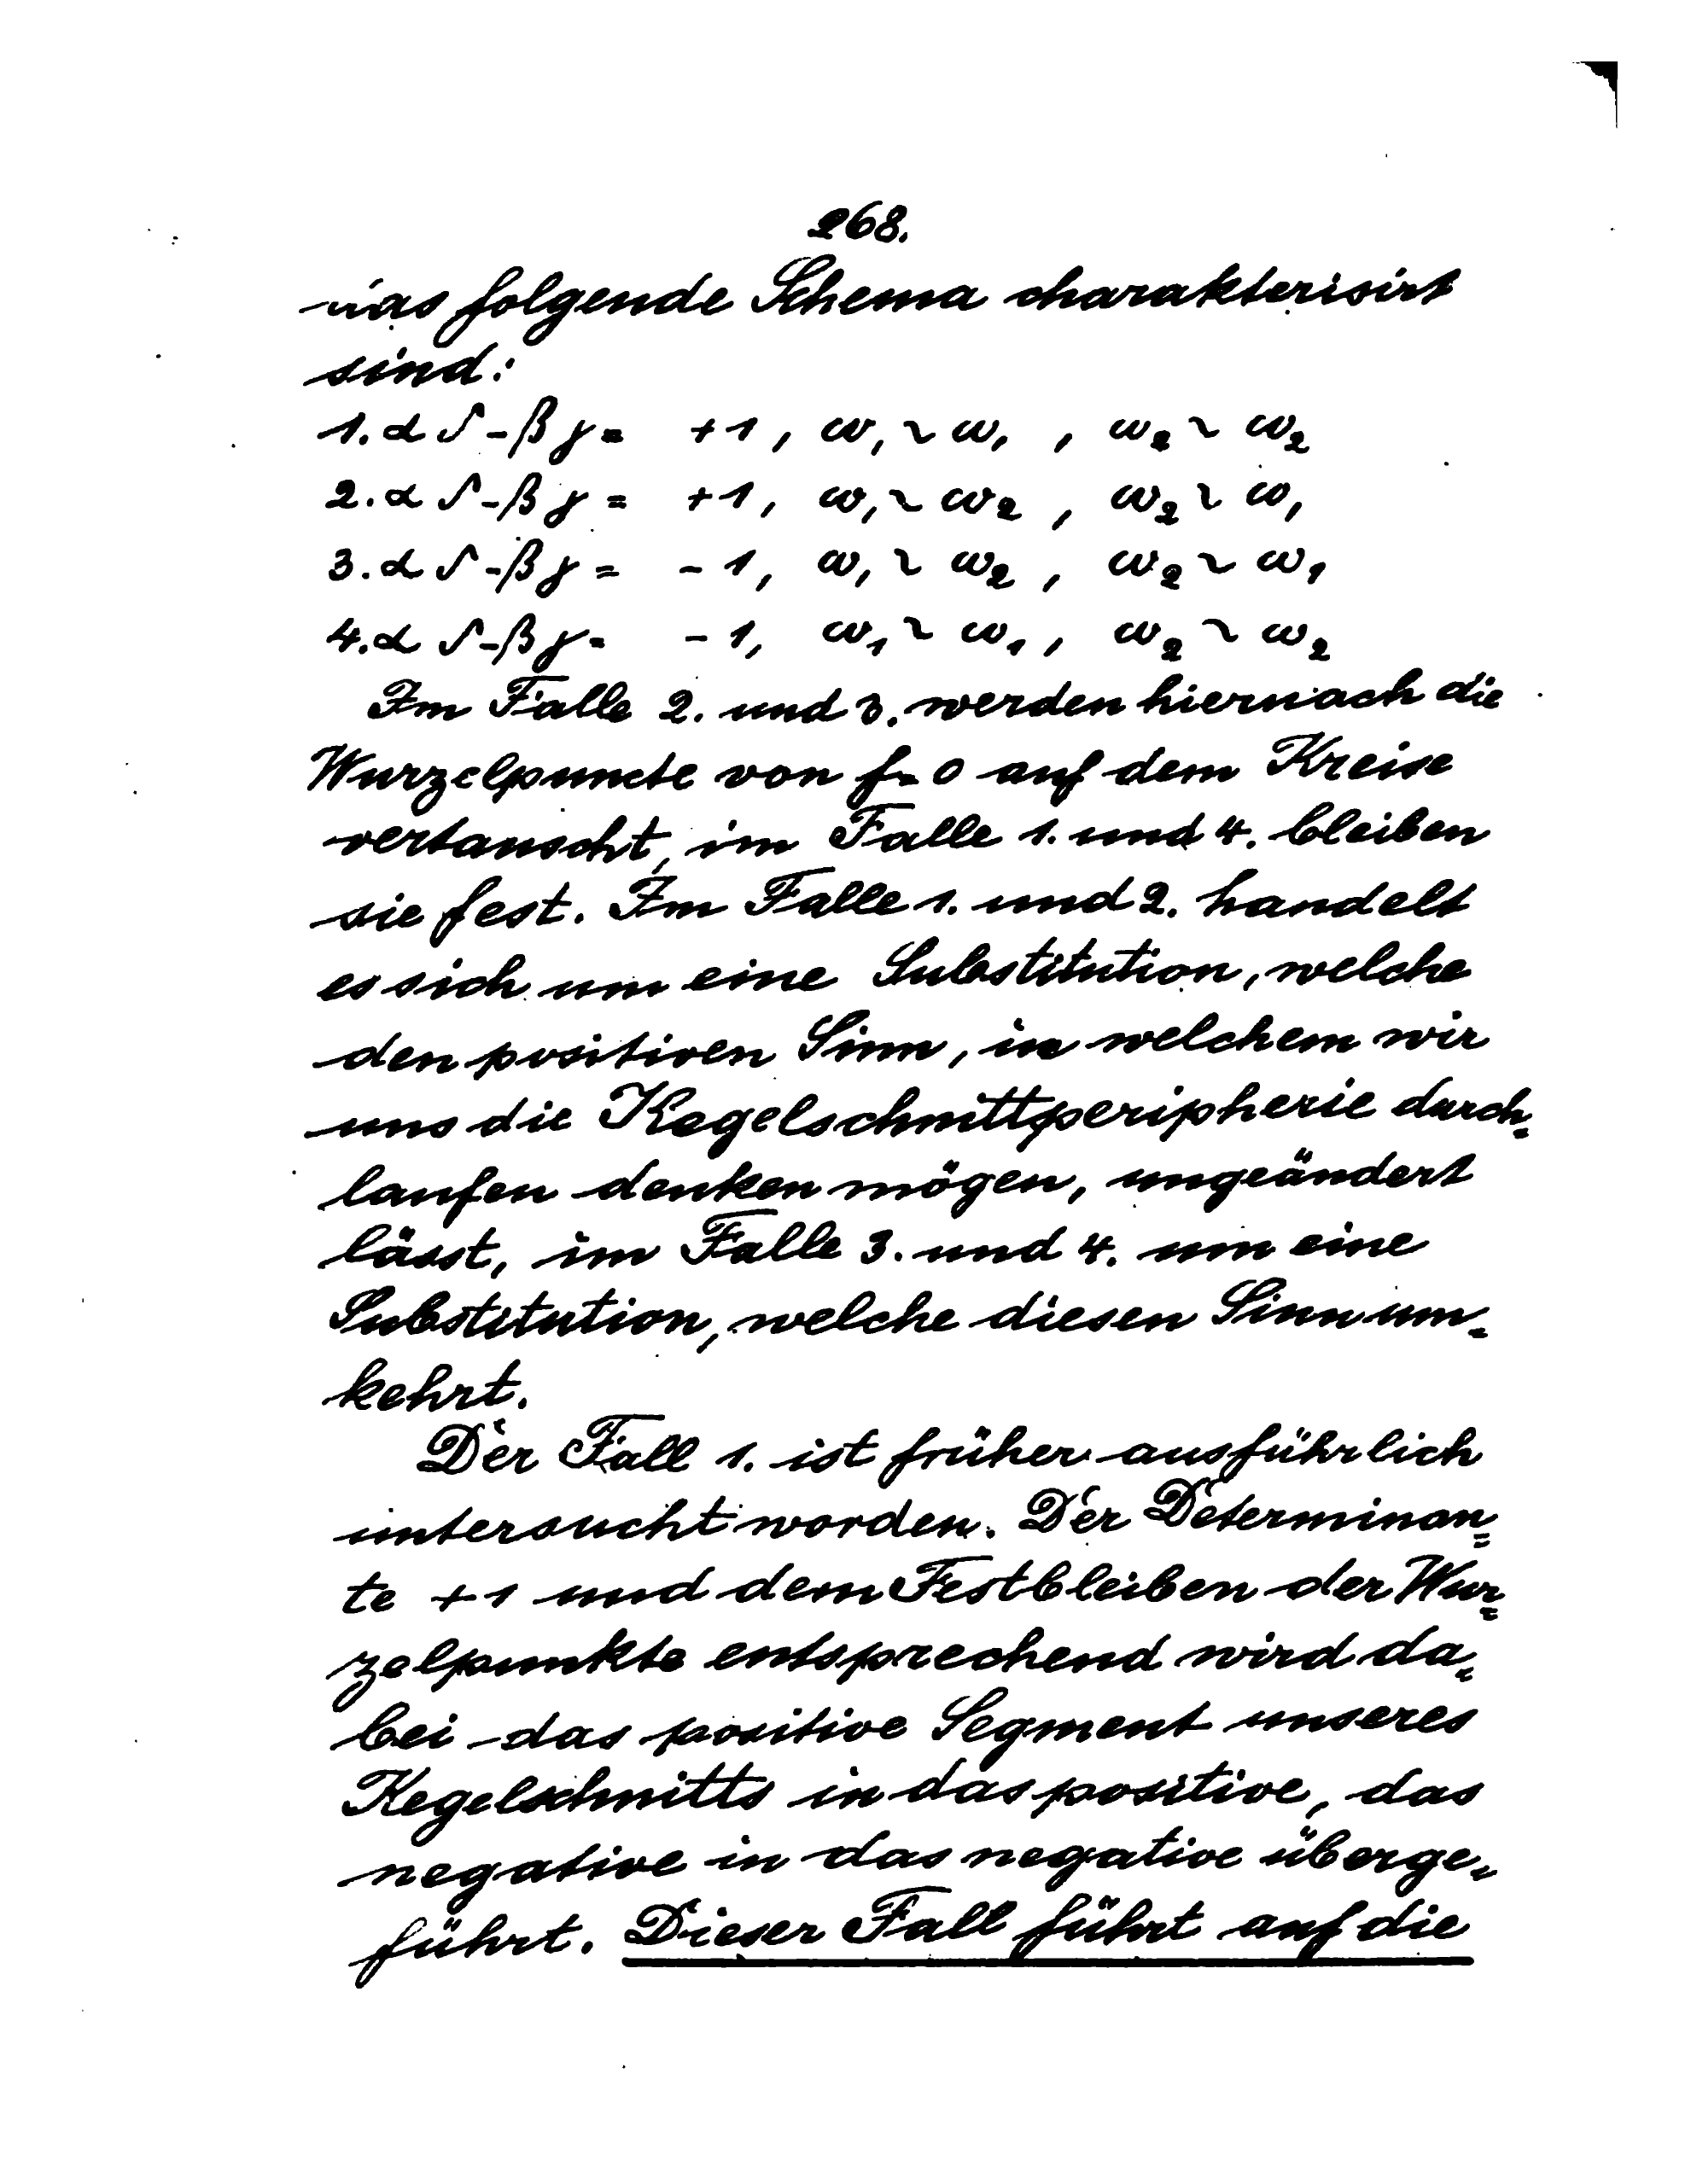 268.
das folgende Schema charakterisirt
sind:
1. αδ-βγ= +1, ω₁~ω₁, ω₂~ω₂
2. αδ-βγ= +1, ω₁~ω₂, ω₂~ω₁
3. αδ-βγ= -1, ω₁~ω₂, ω₂~ω₁
4. αδ-βγ= -1, ω₁~ω₁, ω₂~ω₂
Im Falle 2. und 3. werden hiernach die
Wurzelpuncte von f=0 auf dem Kreise
vertauscht, im Falle 1. und 4. bleiben
sie fest. Im Falle 1. und 2. handelt
es sich um eine Substitution, welche
den positiven Sinn, in welchem wir
uns die Kegelschnittperipherie durch=
laufen denken mögen, ungeändert
lässt, im Falle 3. und 4. um eine
Substitution, welche diesen Sinn um=
kehrt.
Der Fall 1. ist früher ausführlich
untersucht worden. Der Determinan=
te +1 und dem Festbleiben der Wur=
zelpunkte entsprechend wird da=
bei das positive Segment unseres
Kegelschnitts in das positive, das
negative in das negative überge=
führt. Dieser Fall führt auf die